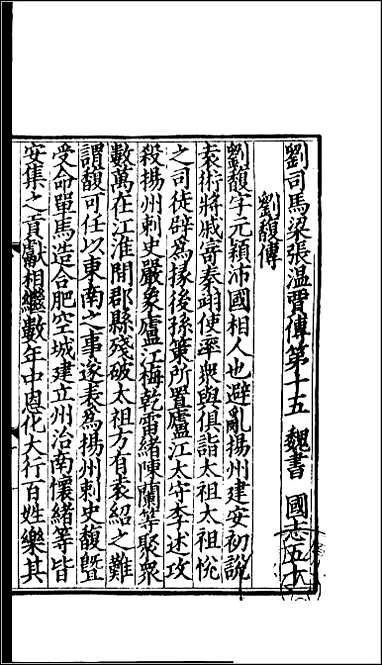 劉司馬梁張溫賈傳第十五 魏書 國志五十
劉馥傳
劉馥字元穎沛國相人也避亂揚州建安初說
袁術將戚寄秦翊使率衆與俱詣太祖太祖悅
之司徒辟爲掾後孫策所置廬江太守李述攻
殺揚州刺史嚴象廬江梅乾雷緒陳蘭等聚衆
數萬在江淮閒郡縣殘破太祖方有袁紹之難
謂馥可任以東南之事遂表爲揚州刺史馥旣
受命單馬造合肥空城建立州治南懷緒等皆
安集之貢獻相繼數年中恩化大行百姓樂其